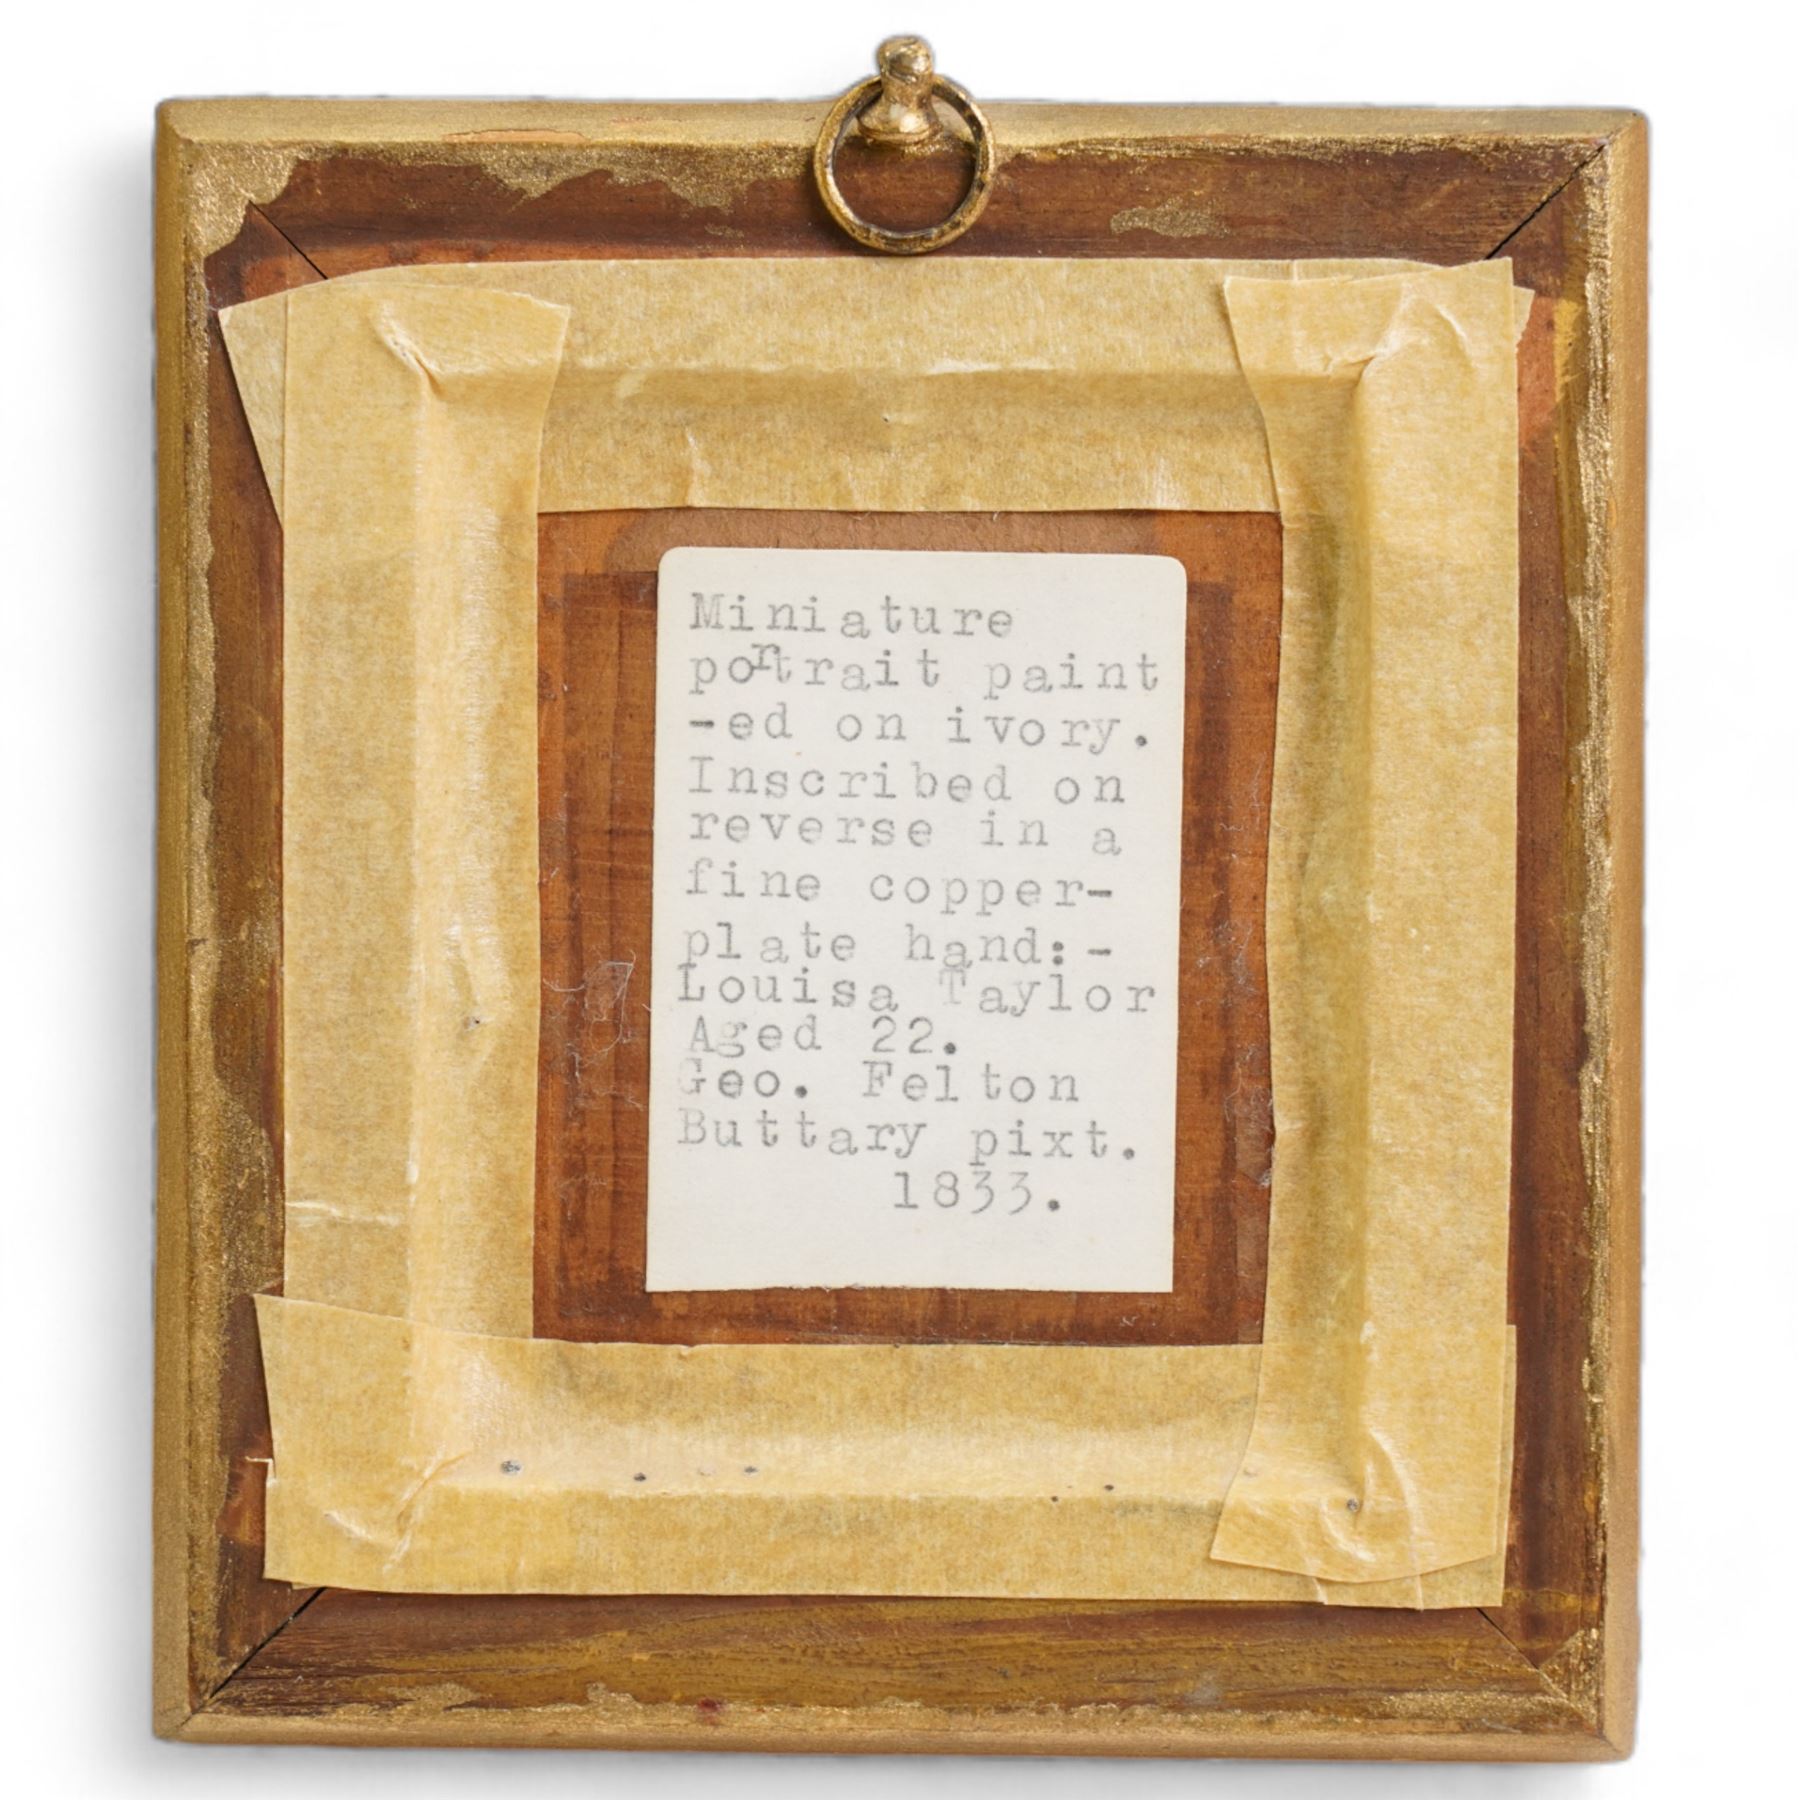 Miniature
portrait paint
-ed on ivory.
Inscribed on
reverse in a
fine copper-
plate hand:-
Louisa Taylor
Aged 22.
Geo. Felton
Buttary pixt.
1833.